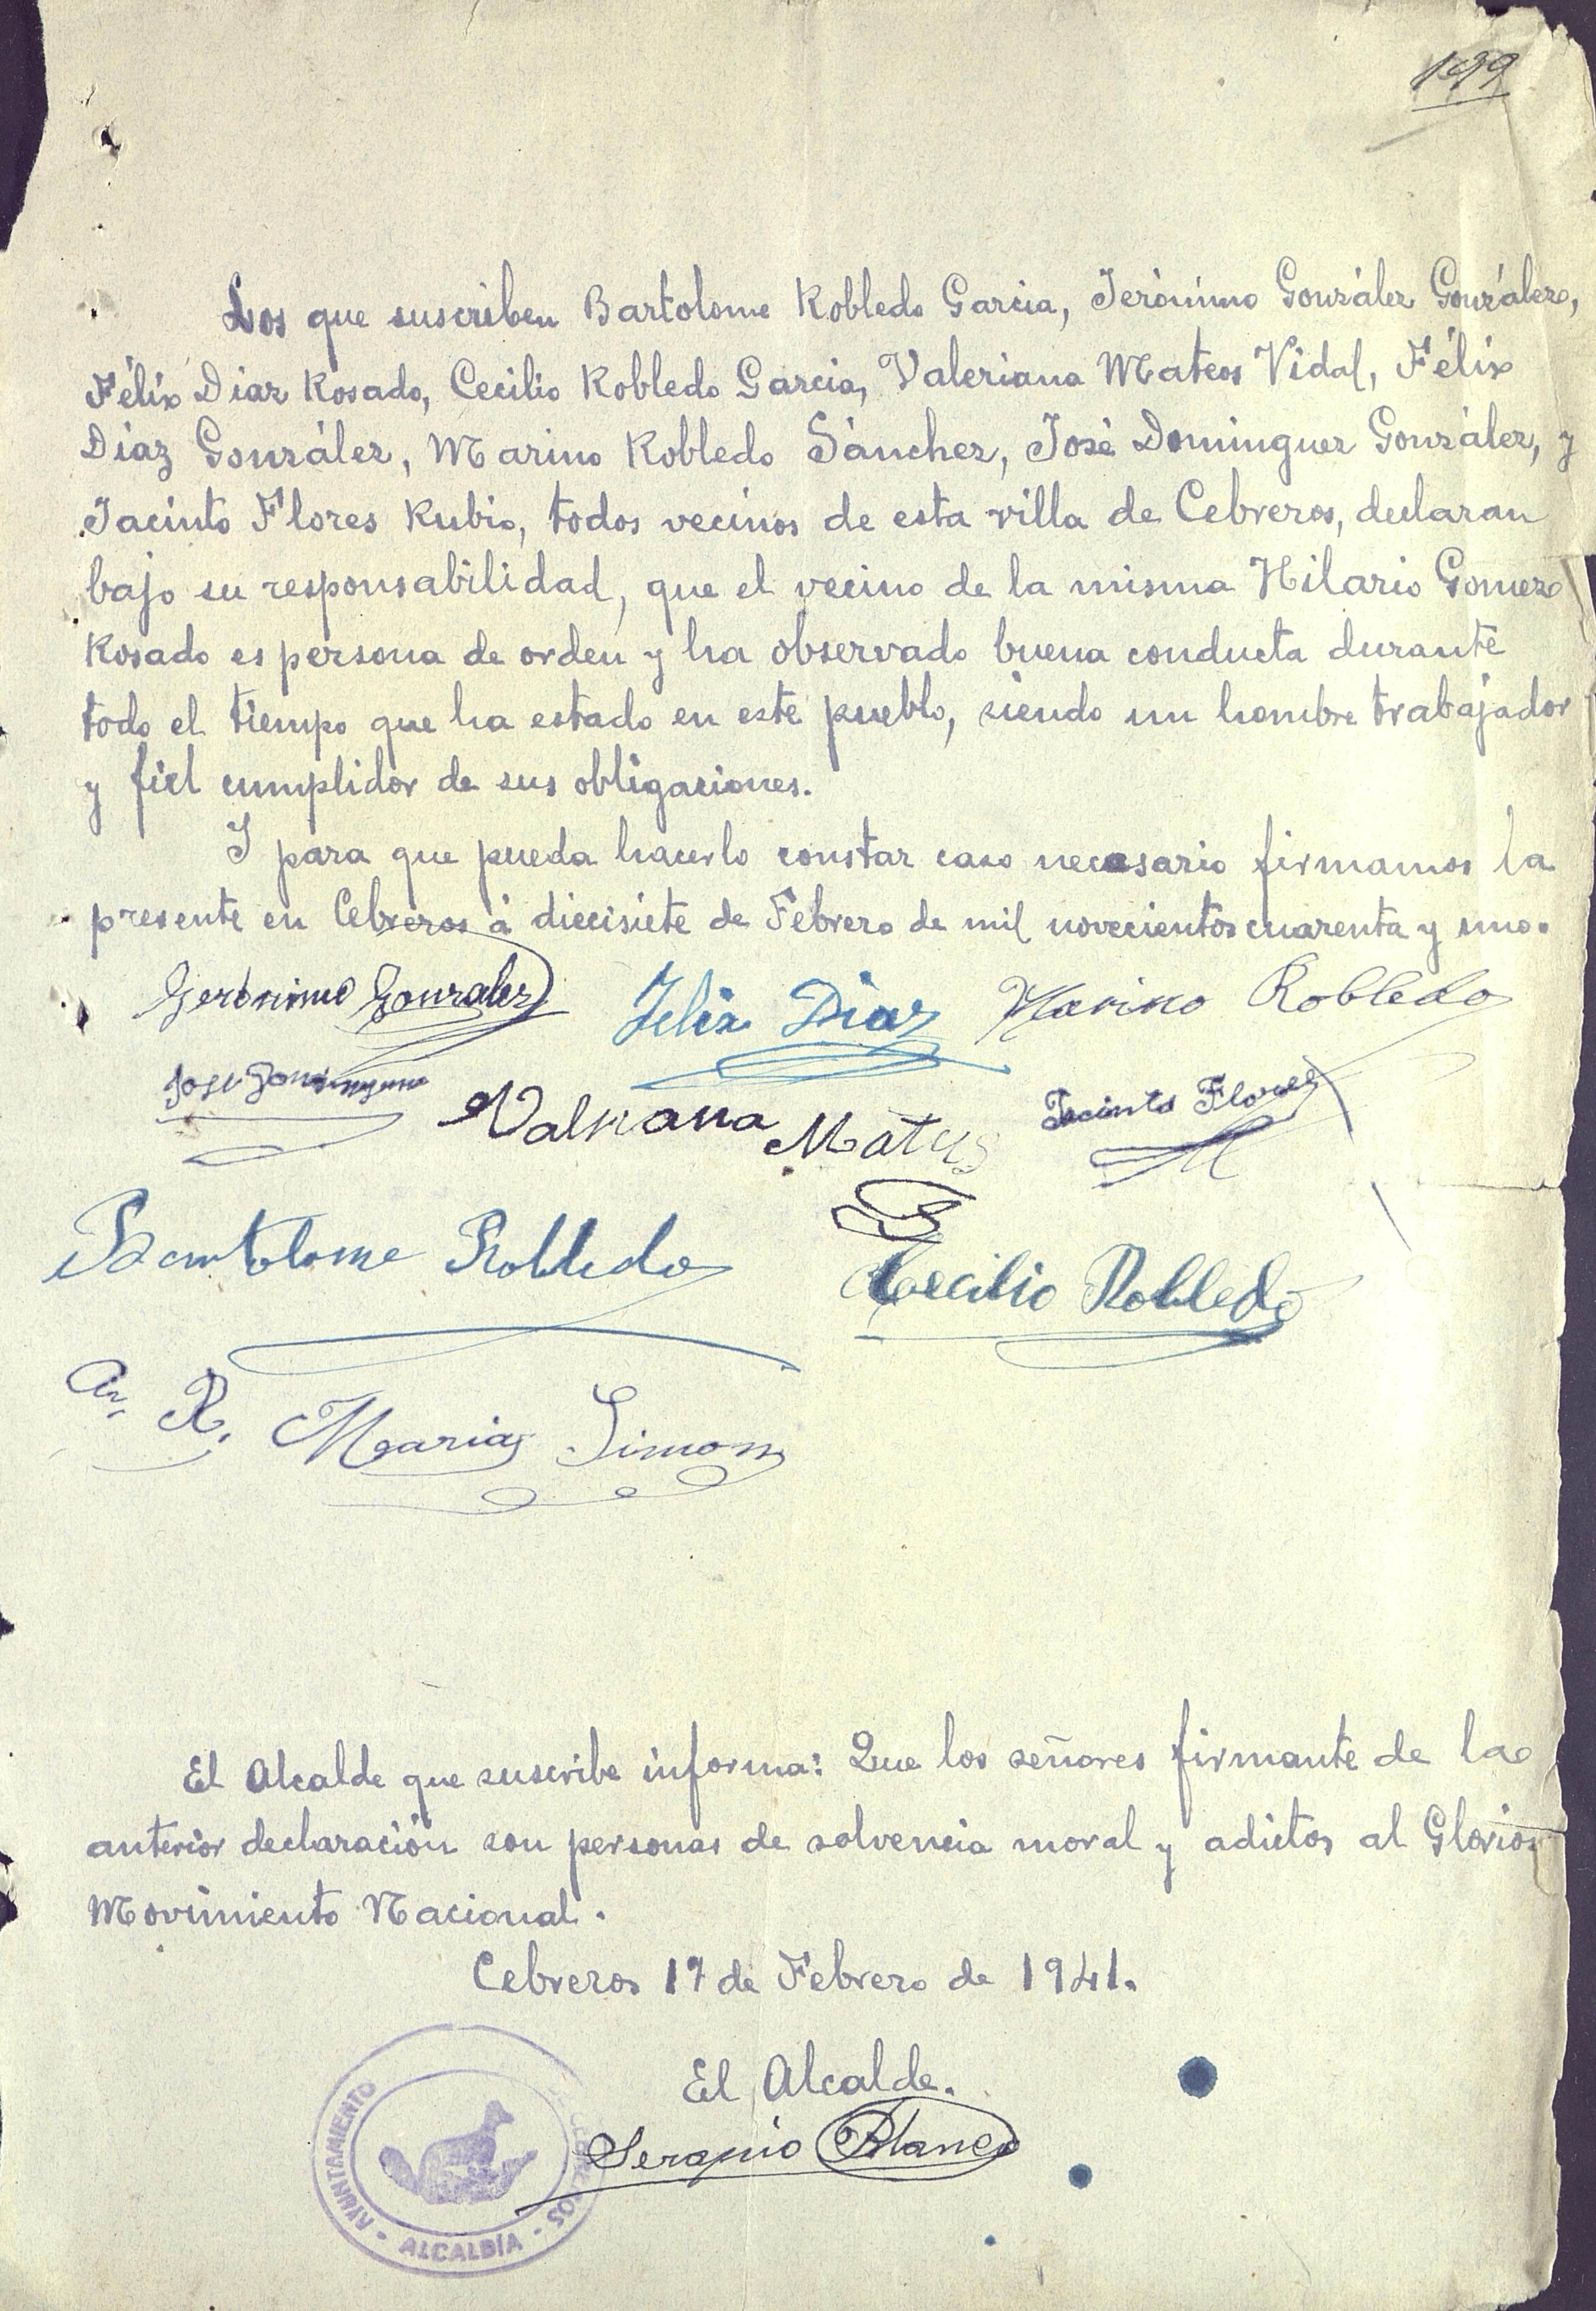 199
Los que suscriben Bartolome Robledo Garcia, Jerónimo González González,
Félix Diaz Rosado, Cecilio Robledo Garcia, Valeriana Mateos Vidal, Félix
Díaz González, Marino Robledo Sánchez, José Dominguez González, y
Jacinto Flores Rubio, todos vecinos de esta villa de Cebreros, declaran
bajo su responsabilidad, que el vecino de la misma Hilario Gomez
Rosado es persona de orden y ha observado buena conducta durante
todo el tiempo que ha estado en este pueblo, siendo un hombre trabajador
y fiel cumplidor de sus obligaciones.
I para que pueda hacerlo constar caso necesario firmamos la
presente en Cebreros á diecisiete de Febrero de mil novecientos cuarenta y uno.
Gerónimo Gonzalez Felix Diaz Marino Robledo
Jose Valeriana Mateos Jacinto Flores
Bartolome Robledo Cecilio Robledo
a R. Maria Simon
El Alcalde que suscribe informa: Que los señores firmante de la
anterior declaración son personas de solvencia moral y adictos al Glorios
Movimiento Nacional.
Cebreros 17 de Febrero de 1941.
El Alcalde.
Serapio Blanco
AYUNTAMIENTO - ALCALDÍA - CEBREROS